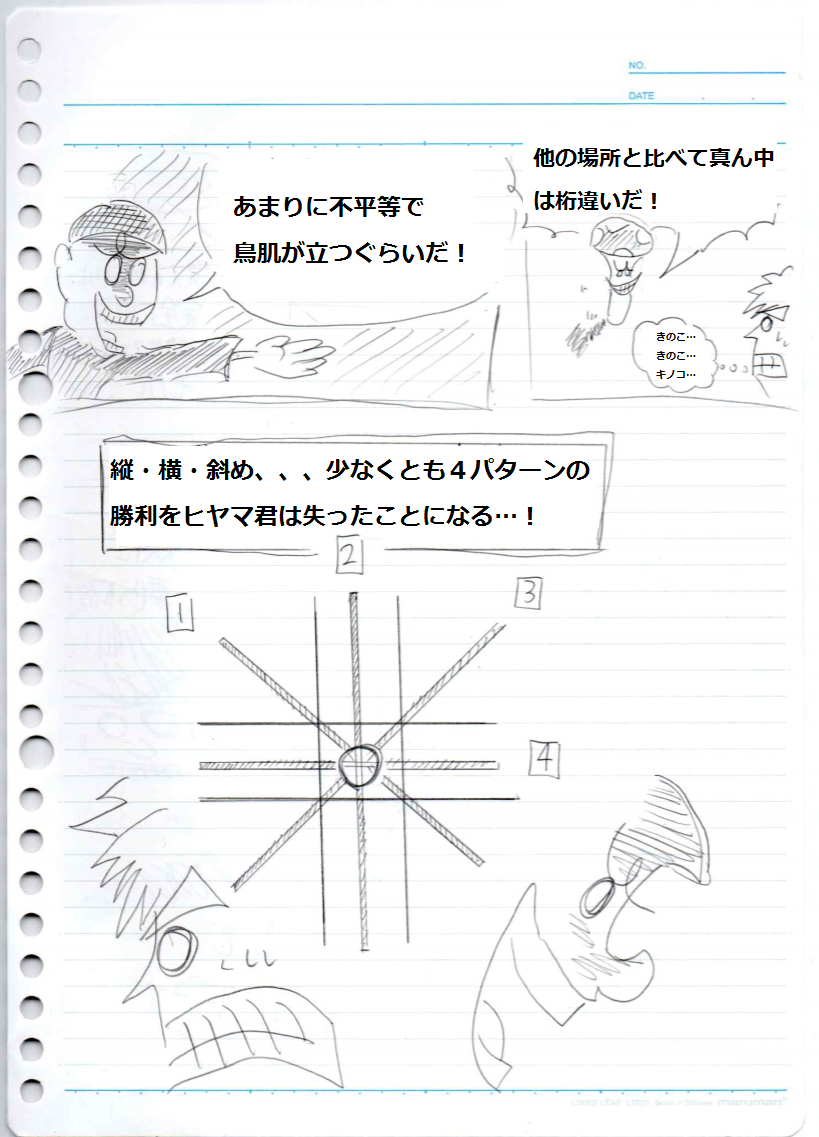 NO.
DATE
あまりに不平等で
鳥肌が立つぐらいだ！
他の場所と比べて真ん中
は桁違いだ！
きのこ…
きのこ…
キノコ…
縦・横・斜め、、、少なくとも４パターンの
勝利をヒヤマ君は失ったことになる…！
2
1
3
4
maruman